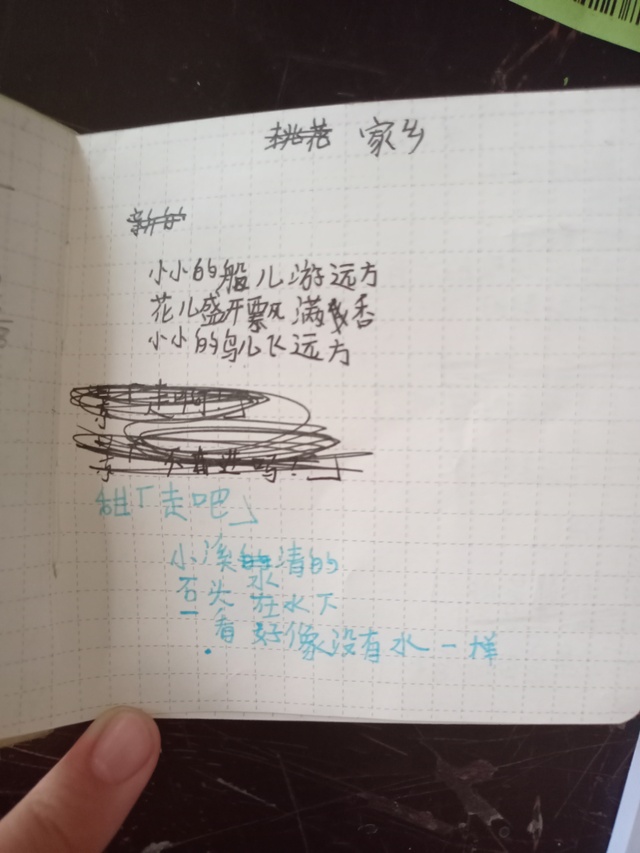 桃花 家乡
新的
小小的船儿游远方
花儿盛开飘满香
小小的鸟儿飞远方
「走吧」
小溪水清的
石头在水下
一看好像没有水一样